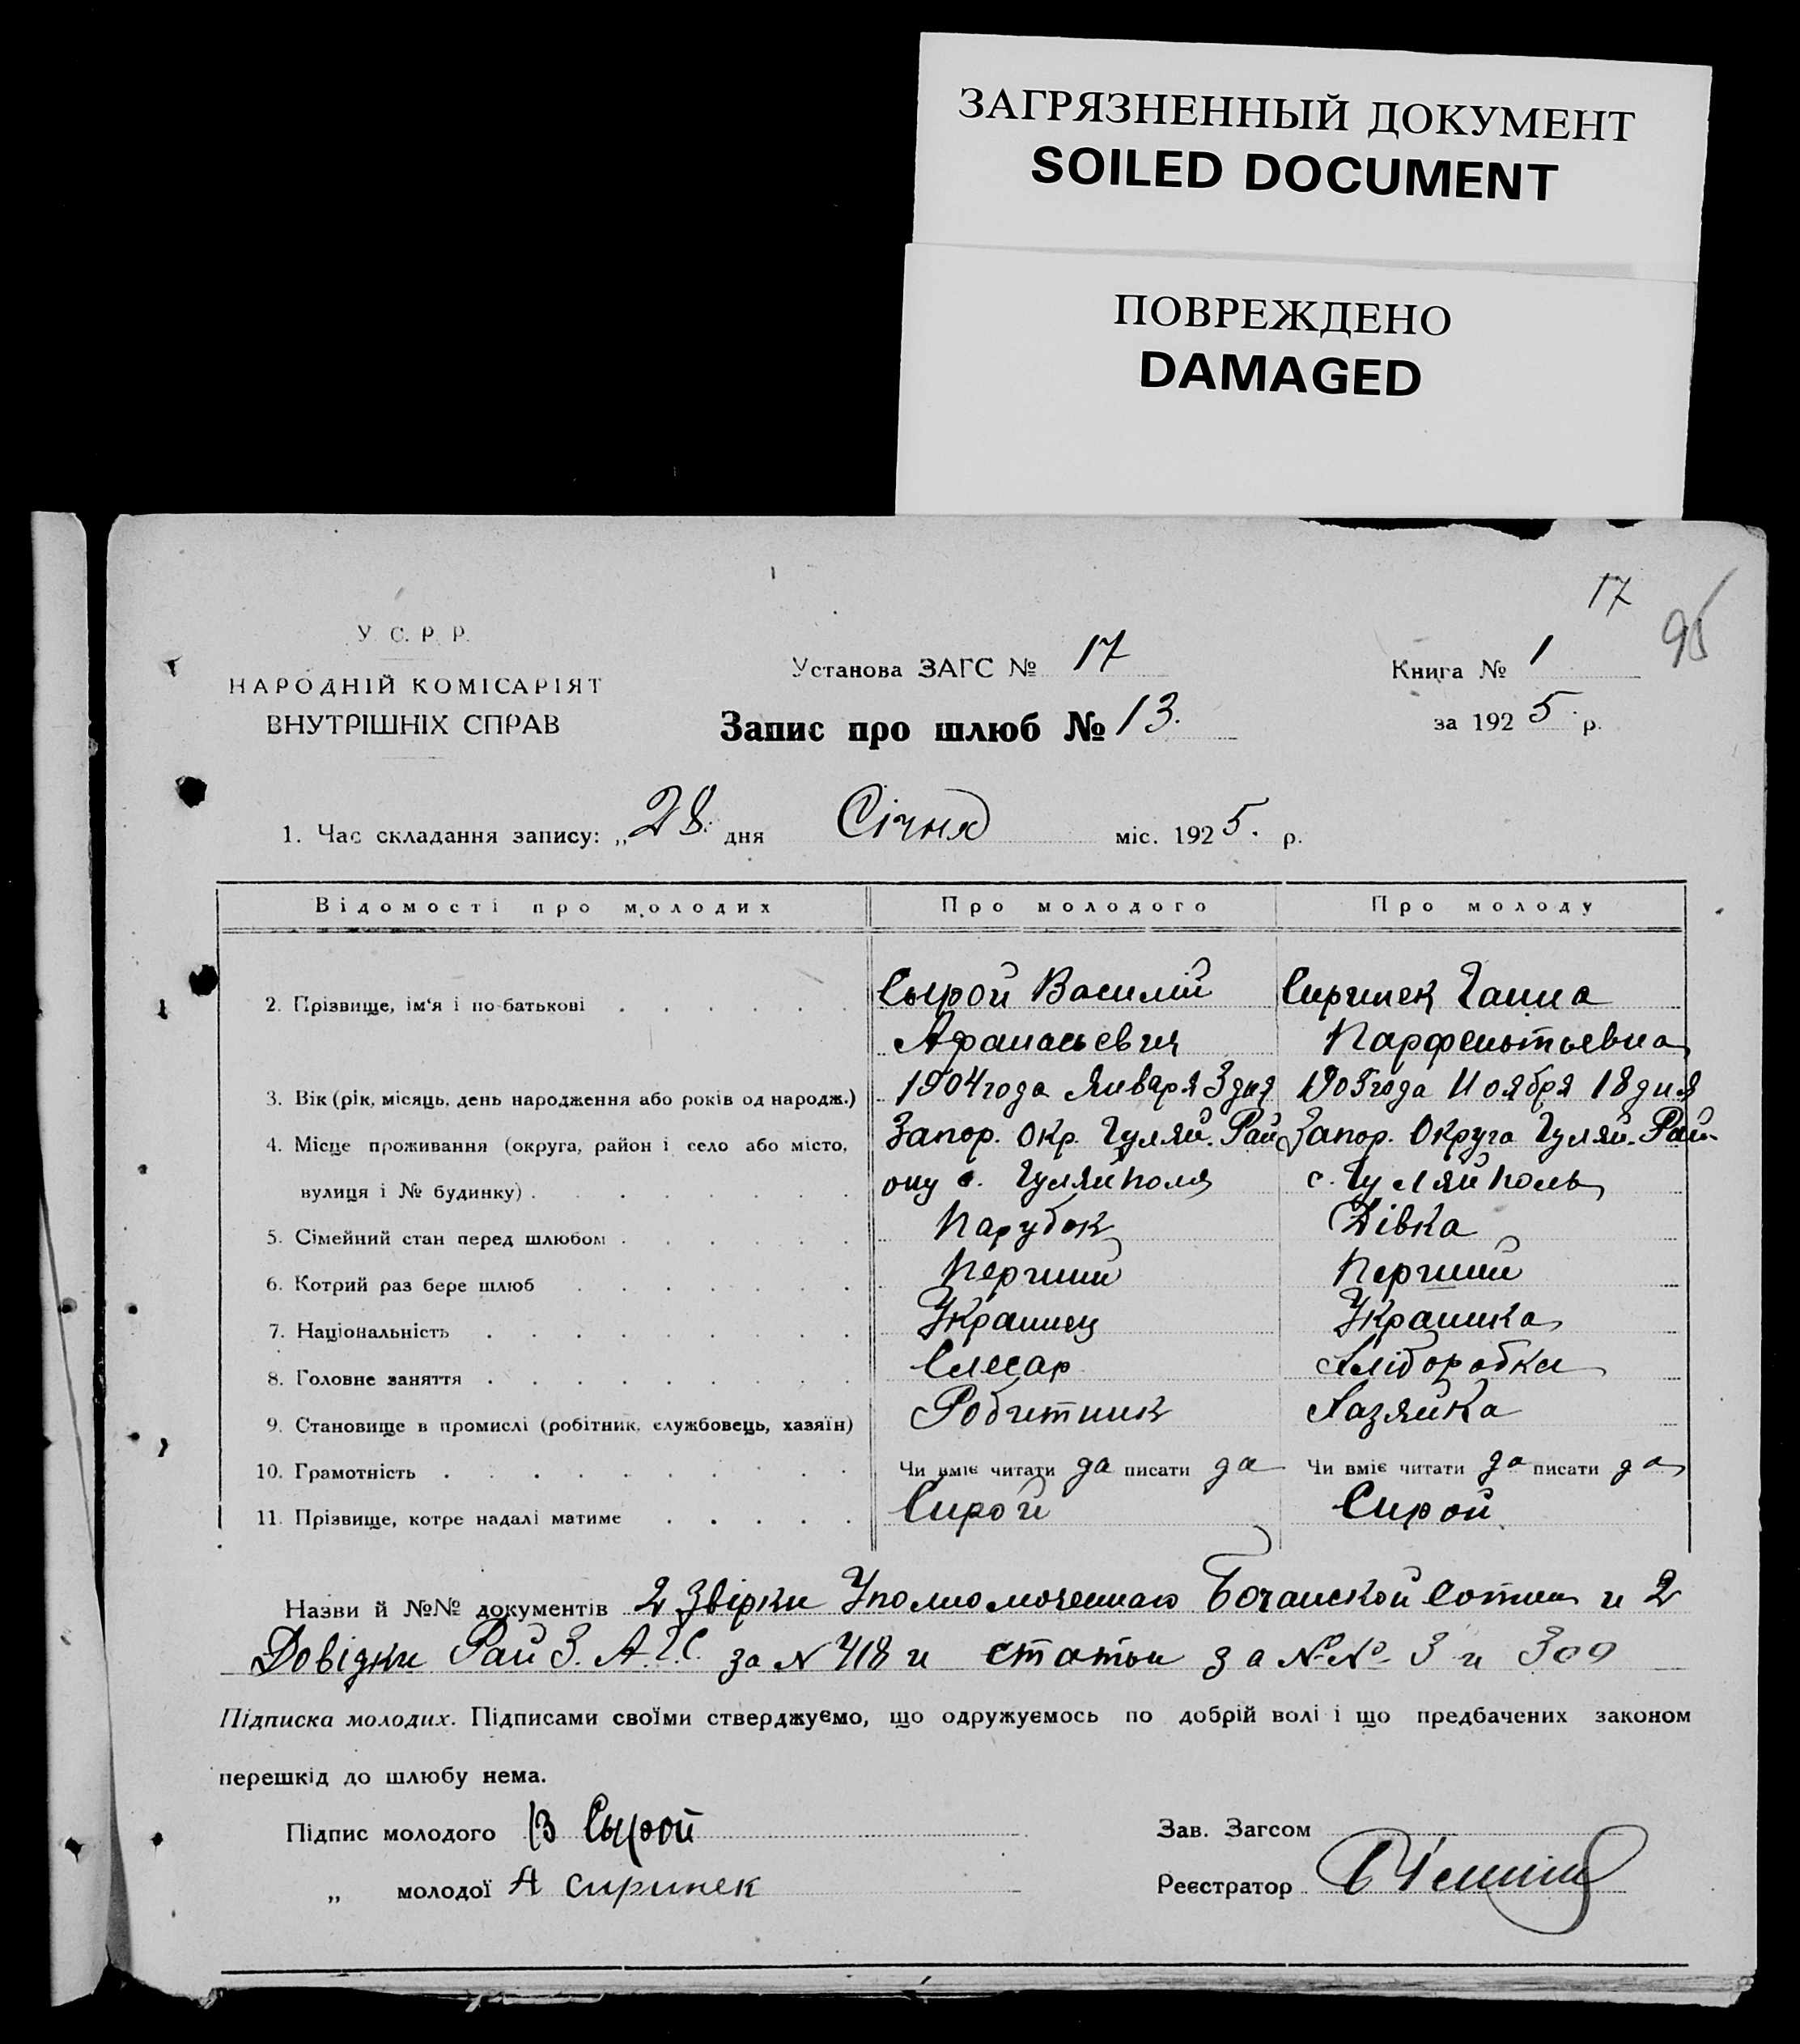 ЗАГРЯЗНЕННЫЙ ДОКУМЕНТ
SOILED DOCUMENT
ПОВРЕЖДЕНО
DAMAGED
17
95
У С. Р. Р.
НАРОДНІЙ КОМІСАРІЯТ
ВНУТРІШНІХ СПРАВ
Установа ЗАГС № 17
Книга № 1
Запис про шлюб № 13.
за 1925 р.
1. Час складання запису: „28. дня Січня міс. 1925. р.
Відомості про молодих Про молодого Про молоду
2. Прізвище, ім'я і по-батькові Сырой Василий Сиринек Ганна
Афанасьевич Парфентьевна
3. Вік (рік, місяць, день народження або років од народж.) 1904 года Января 3 дня 1905 года Ноября 18 дня
4. Місце проживання (округа, район і село або місто, Запор. Окр. Гуляй. Рай Запор. Округа Гуляй. Рай.
вулиця і № будинку) ону с. Гуляйполя с. Гуляйполь
5. Сімейний стан перед шлюбом Парубок Дівка
6. Котрий раз бере шлюб Перший Перший
7. Національність Украинец Украинка
8. Головне заняття Слесар Хліборобка
9. Становище в промислі (робітник, службовець, хазяїн) Робитник Хазяйка
10. Грамотність Чи вміє читати да писати да Чи вміє читати да писати да
11. Прізвище, котре надалі матиме Сирой Сирой
Назви й №№ документів 2 Звірки Уполномоченного Бочанской Сотни и 2
Довідки Рай З. А. Г. С. за N 418 и статьи за №№ 3 и 309
Підписка молодих. Підписами своїми стверджуємо, що одружуємось по добрій волі і що предбачених законом
перешкід до шлюбу нема.
Підпис молодого В Сырой
Зав. Загсом
„ молодої А сиринек
Реєстратор